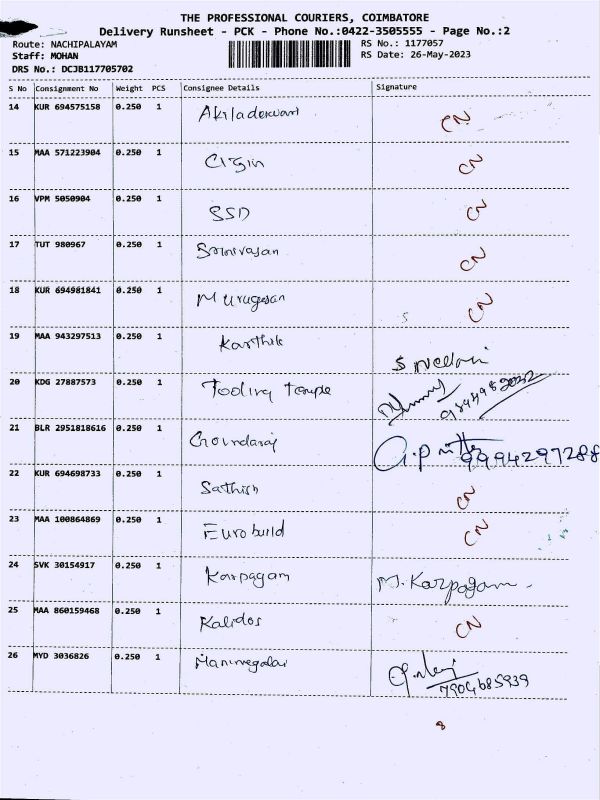 THE PROFESSIONAL COURIERS, COIMBATORE
Delivery Runsheet - PCK - Phone No.:0422-3505555 - Page No.:2
Route: NACHIPALAYAM RS No.: 1177057
Staff: MOHAN RS Date: 26-May-2023
DRS No.: DCJB117705702
S No Consignment No Weight PCS Consignee Details Signature
14 KUR 694575158 0.250 1 CN
15 MAA 571223904 0.250 1 CN
16 VPM 5050904 0.250 1 SSD CN
17 TUT 980967 0.250 1 Srinivasan CN
18 KUR 694981841 0.250 1 Murugesan CN
19 MAA 943297513 0.250 1 Karthik
20 KDG 27887573 0.250 1 Tooling temple
21 BLR 2951818616 0.250 1 Govindaraj 9994297288
22 KUR 694698733 0.250 1 Sathish CN
23 MAA 100864869 0.250 1 Euro build CN
24 SVK 30154917 0.250 1 Karpagam M. Karpagam
25 MAA 860159468 0.250 1 Kalidos CN
26 MYD 3036826 0.250 1 Manimegalai 7904685939
8